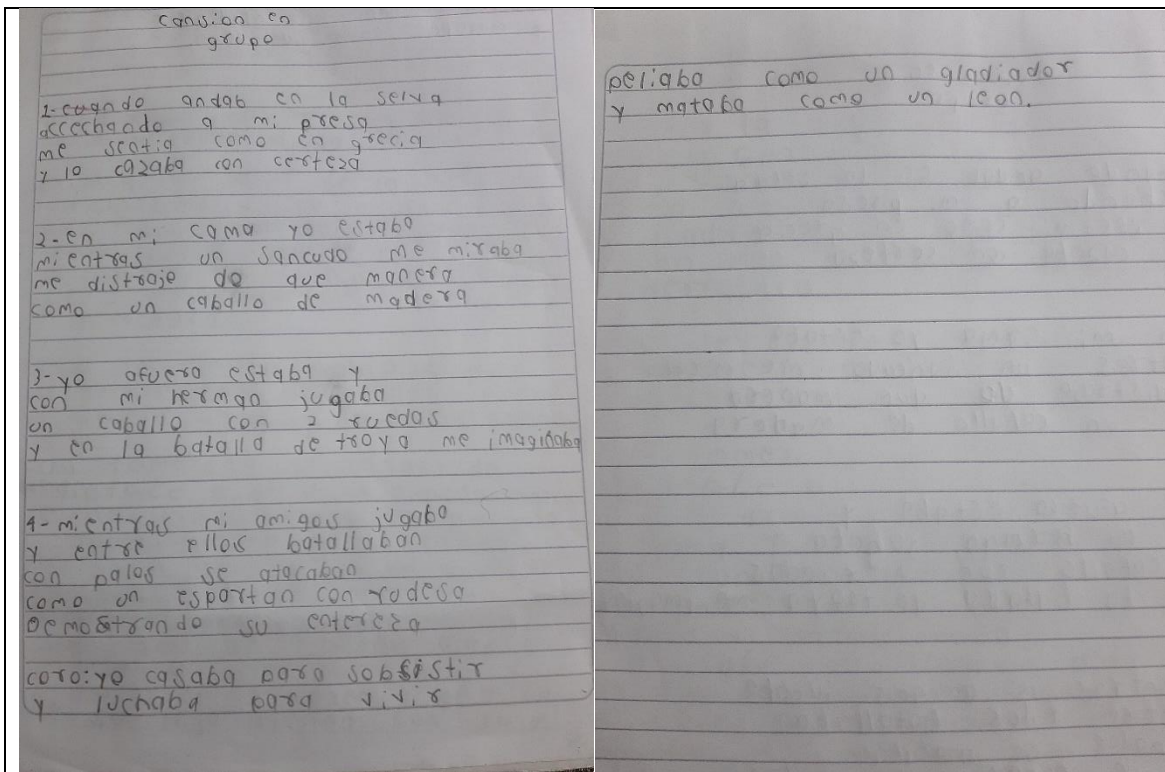 cansion en
grupo
1-cuando andab en la selva
accechando a mi presa
me sentia como en grecia
y lo cazaba con certeza
2-en mi cama yo estaba
mientras un sancudo me miraba
me distraje do que manera
como un caballo de madera
3-yo afuera estaba y
con mi hermao jugaba
un caballo con 2 ruedas
y en la batalla de troya me imaginaba
4-mientras mi amigos jugaba
y entre ellos batallaban
con palos se atacaban
como un espartan con rudesa
Demostrando su entereza
coro: yo casaba para sobsistir
y luchaba para vivir
peliaba como un gladiador
y mataba como un leon.